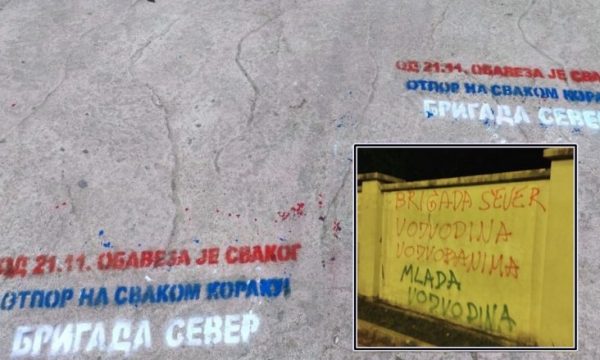 ОД 21.11. ОБАВЕЗА ЈЕ СВА
ОТПОР НА СВАКОМ КОРА
БРИГАДА СЕВЕР
ОД 21.11. ОБАВЕЗА ЈЕ СВАКОГ
ОТПОР НА СВАКОМ КОРАКУ!
БРИГАДА СЕВЕР
BRIGADA SEVER
VOJVODINA
VOJVOĐANIMA
MLADA
VOJVODINA